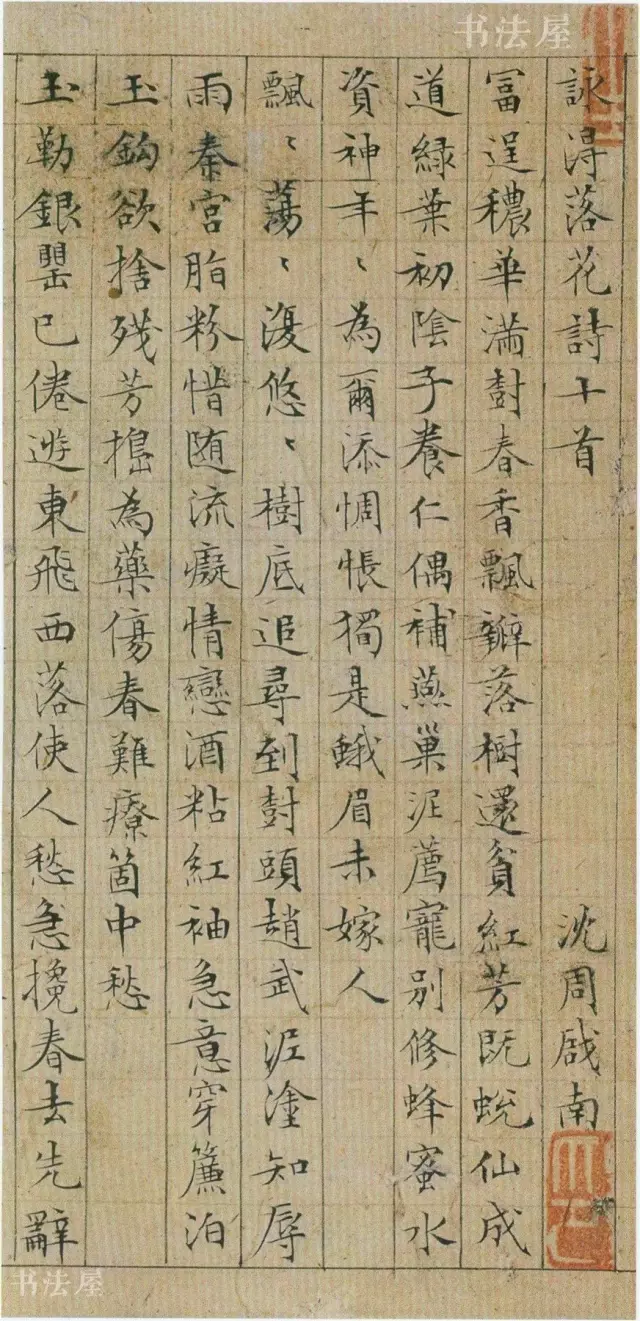 书法屋
詠淂落花詩十首 沈周啟南
富逞穠華滿樹春香飄瓣落樹還貧紅芳既蛻仙成
道緑葉初陰子養仁偶補燕巢泥薦寵別修蜂蜜水
資神年〻為爾添惆悵獨是蛾眉未嫁人
飄〻蕩〻復悠〻樹底追尋到樹頭趙武泥塗知辱
雨秦宮脂粉惜隨流癡情戀酒粘紅袖急意穿簾泊
玉鈎欲捨殘芳搗為藥傷春難療箇中愁
玉勒銀罌已倦遊東飛西落使人愁急攙春去先辭
书法屋